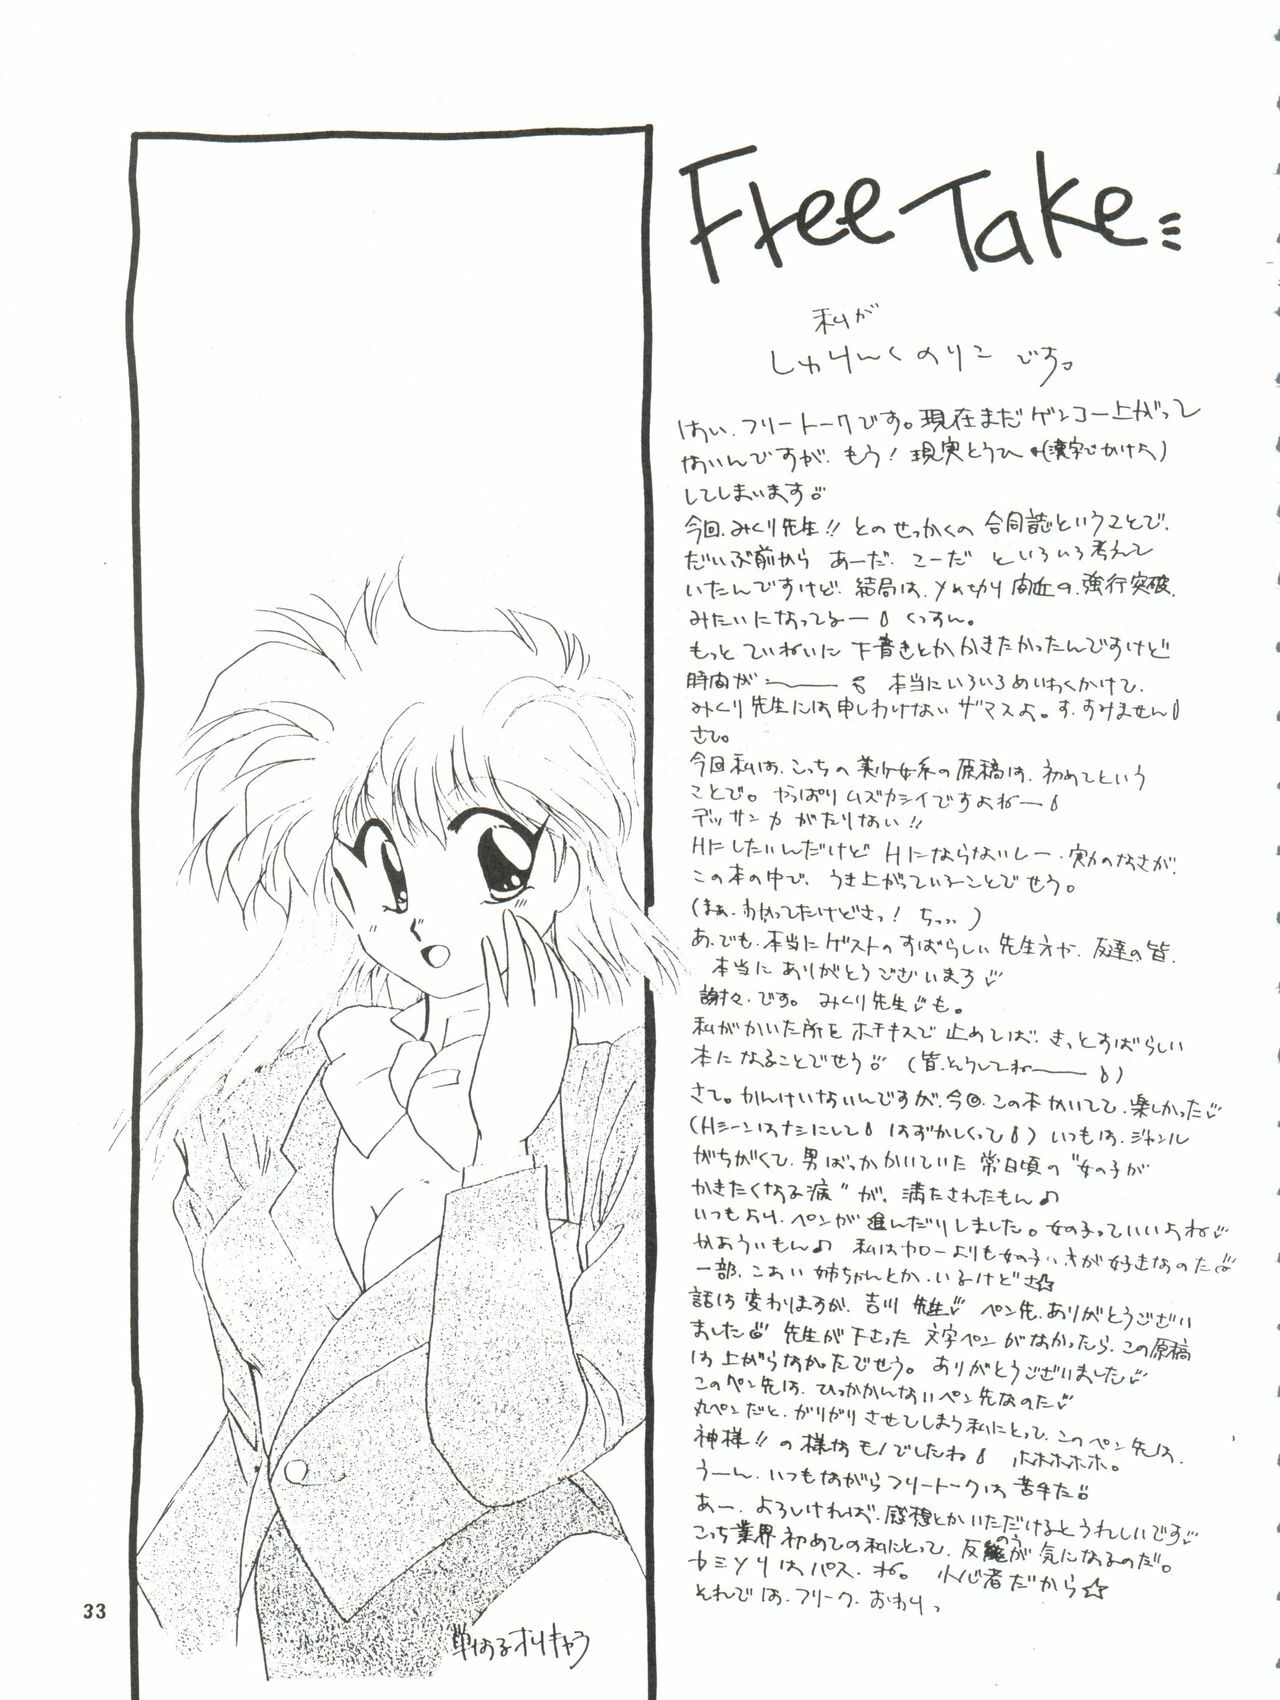 Free Take
私が
しゅりんくのりこ です。
はい、フリートークです。現在まだゲンコー上がって
ないんですが、もう!現実とうひ(漢字でかけよ)
してしまいます
今回、みくり先生!!とのせっかくの合同誌ということで、
だいぶ前から あーだ、こーだ といろいろ考えて
いたんですけど、結局は、〆め切り間近の、強行突破
みたいになってるー くっすん。
もっと ていねいに 下書きとかかきたかったんですけど
時間が――― 本当にいろいろめいわくかけて、
みくり先生には申しわけないザマスよ。す、すみません
さて。
今回私は、こっちの美少女系の原稿は、初めてという
ことで。やっぱりムズカシイですよねー
デッサン力がたりない!!
Hにしたいんだけど Hにならないしー、実力のなさが、
この本の中で、うき上がっていることでせう。
(まぁ、わかってたけどさっ! ちっ)
あ、でも、本当にゲストのすばらしい先生方や、友達の皆、
本当にありがとうございます
謝々、です。みくり先生も。
私がかいた所をホチキスで止めてしば、きっとすばらしい
本になることでせう (皆、そうしてね―――)
さて。かんけいないんですが、今回、この本かいてて、楽しかった
(Hシーンはナシにして はずかしくって) いつもは、ジャンル
がちがくて、男ばっかかいていた 常日頃の "女の子が
かきたくなる病" が、満たされたもん♪
いつもより、ペンが進んだりしました。女の子っていいよね
かあういもん♪ 私はヤローよりも女の子、が好きなのだ
一部、こあい姉ちゃんとか、いるけどさ☆
話は変わりますが、吉川先生 ペン先、ありがとうござい
ました 先生が下さった 文字ペンがなかったら、この原稿
は上がらなかったでせう。ありがとうございました
このペン先は、ひっかかんないペン先なのだ
丸ペンだと、がりがりさせてしまう私にとって、このペン先は、
神様!!の様なモノでしたね ホホホホホ。
うーん、いつもながらフリートークは苦手だ
あー、よろしければ、感想とかいただけるとうれしいです
こっち業界初めての私にとって、反応が気になるのだ。
カミソリはパス、ね。小心者だから☆
それでは、フリーク、おわりっ
単なるオリキャラ
33